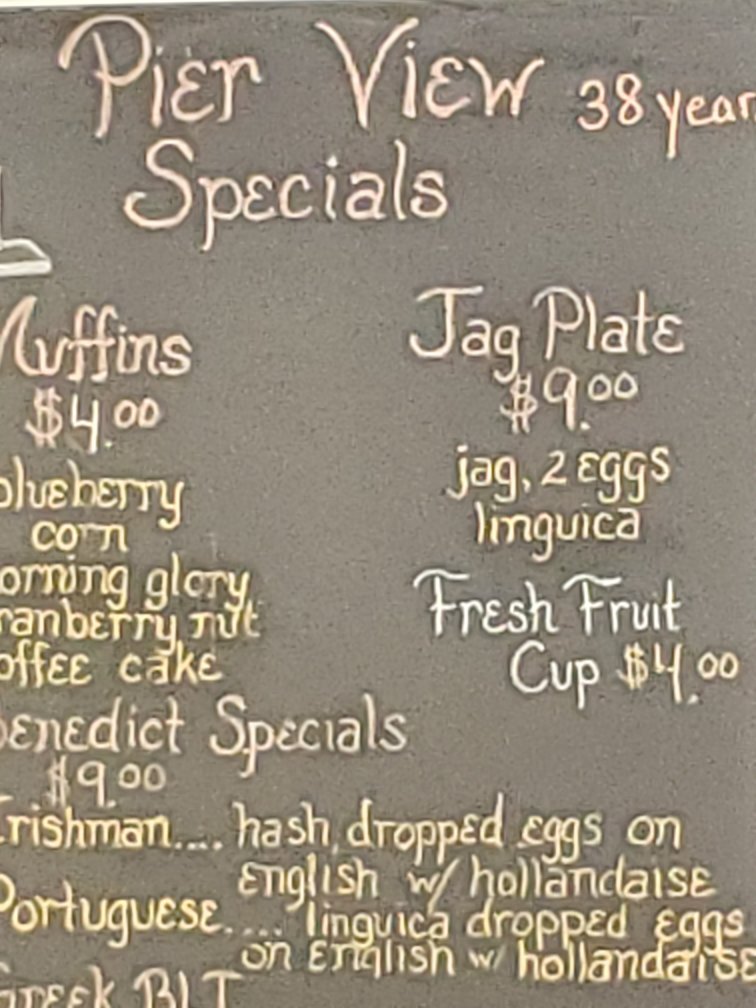 Pier View 38 year
Specials
Muffins
$4.00
blueberry
corn
orning glory
ranberry nut
offee cake
Jag Plate
$9.00
jag, 2 eggs
linguica
Fresh Fruit
Cup $4.00
Benedict Specials
$9.00
Irishman.... hash, dropped eggs on
english w/ hollandaise
Portuguese.... linguica dropped eggs
on english w/ hollandaise
Greek BLT